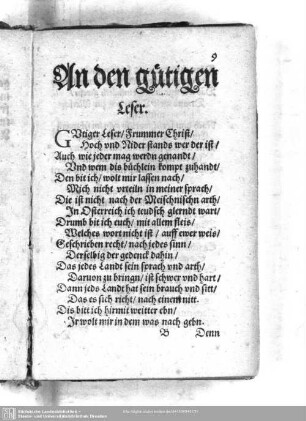 9
An den gütigen
Leser.
GVtiger Leser/ Frummer Christ/
Hoch vnd Nider stands wer der ist/
Auch wie jeder mag werdn genandt/
Vnd wem dis büchlein kompt zuhandt/
Den bit ich/ wolt mir lassen nach/
Mich nicht vrteiln in meiner sprach/
Die ist nicht nach der Meischnischn arth/
In Osterreich ich teudsch glerndt wart/
Drumb bit ich euch/ mit allem fleis/
Welches wort nicht ist / auff ewer weis/
Geschrieben recht/ nach jedes sinn/
Derselbig der gedenck dahin/
Das jedes Landt sein sprach vnd arth/
Daruon zu bringn/ ist schwer vnd hart/
Dann jeds Landt hat sein brauch vnd sitt/
Das es sich richt/ nach einem nitt.
Dis bitt ich hirmit weitter ebn/
Ir wolt mir in dem was nach gebn.
B
Denn